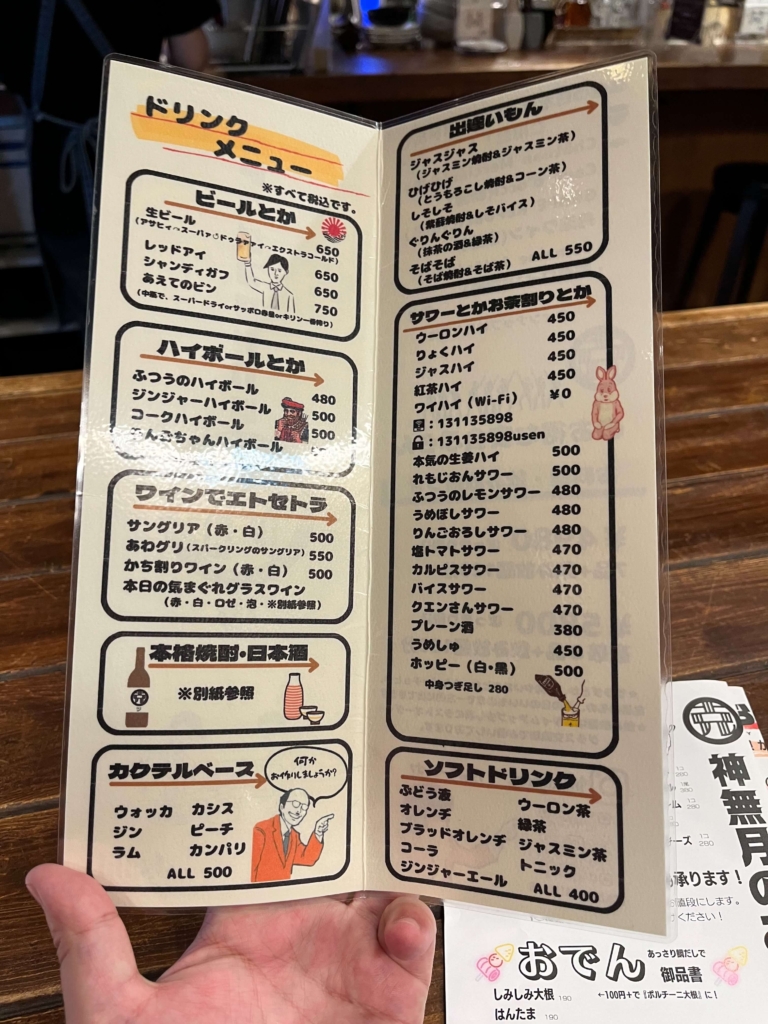 ドリンク
メニュー
※すべて税込です。
ビールとか
生ビール 650
レッドアイ 650
シャンディガフ 650
あえてのビン 750
ハイボールとか
ふつうのハイボール 480
ジンジャーハイボール 500
コークハイボール 500
ワインでエトセトラ
サングリア（赤・白） 500
あわグリ（スパークリングのサングリア） 550
かち割りワイン（赤・白） 500
本日の気まぐれグラスワイン
（赤・白・ロゼ・泡・※別紙参照）
本格焼酎・日本酒
※別紙参照
カクテルベース
何か
お作りしましょうか?
ウォッカ カシス
ジン ピーチ
ラム カンパリ
ALL 500
出逢いもん
ジャスジャス
（ジャスミン焼酎&ジャスミン茶）
ひげひげ
（とうもろこし焼酎&コーン茶）
しそしそ
（紫蘇焼酎&しそバイス）
ぐりんぐりん
（抹茶の酒&緑茶）
そばそば ALL 550
（そば焼酎&そば茶）
サワーとかお茶割りとか
ウーロンハイ 450
りょくハイ 450
ジャスハイ 450
紅茶ハイ 450
ワイハイ（Wi-Fi） ¥0
：131135898
：131135898usen
本気の生姜ハイ 500
れもじおんサワー 500
ふつうのレモンサワー 480
うめぼしサワー 480
りんごおろしサワー 480
塩トマトサワー 470
カルピスサワー 470
バイスサワー 470
クエンさんサワー 470
プレーン酒 380
うめしゅ 450
ホッピー（白・黒） 500
中身つぎ足し 280
ソフトドリンク
ぶどう液 ウーロン茶
オレンヂ 緑茶
ブラッドオレンヂ ジャスミン茶
コーラ トニック
ジンジャーエール ALL 400
神無月の
承ります！
おでん
あっさり鶏だしで
御品書
しみしみ大根 190
←100円+で『ポルチーニ大根』に！
はんたま 190